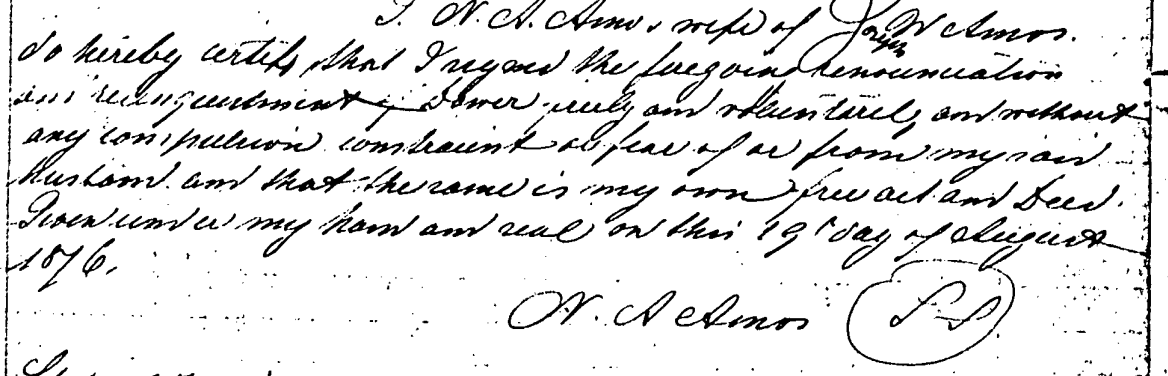 I. N. A. Amos wife of Joseph W Amos.
do hereby certify that I signed the foregoing renounciation
and relinquishment of Dower freely and voluntarily and without
any compulsion constraint or fear of or from my said
Husband and that the same is my own free act and Deed.
Given under my hand and seal on this 19th day of August
1876.
N. A Amos